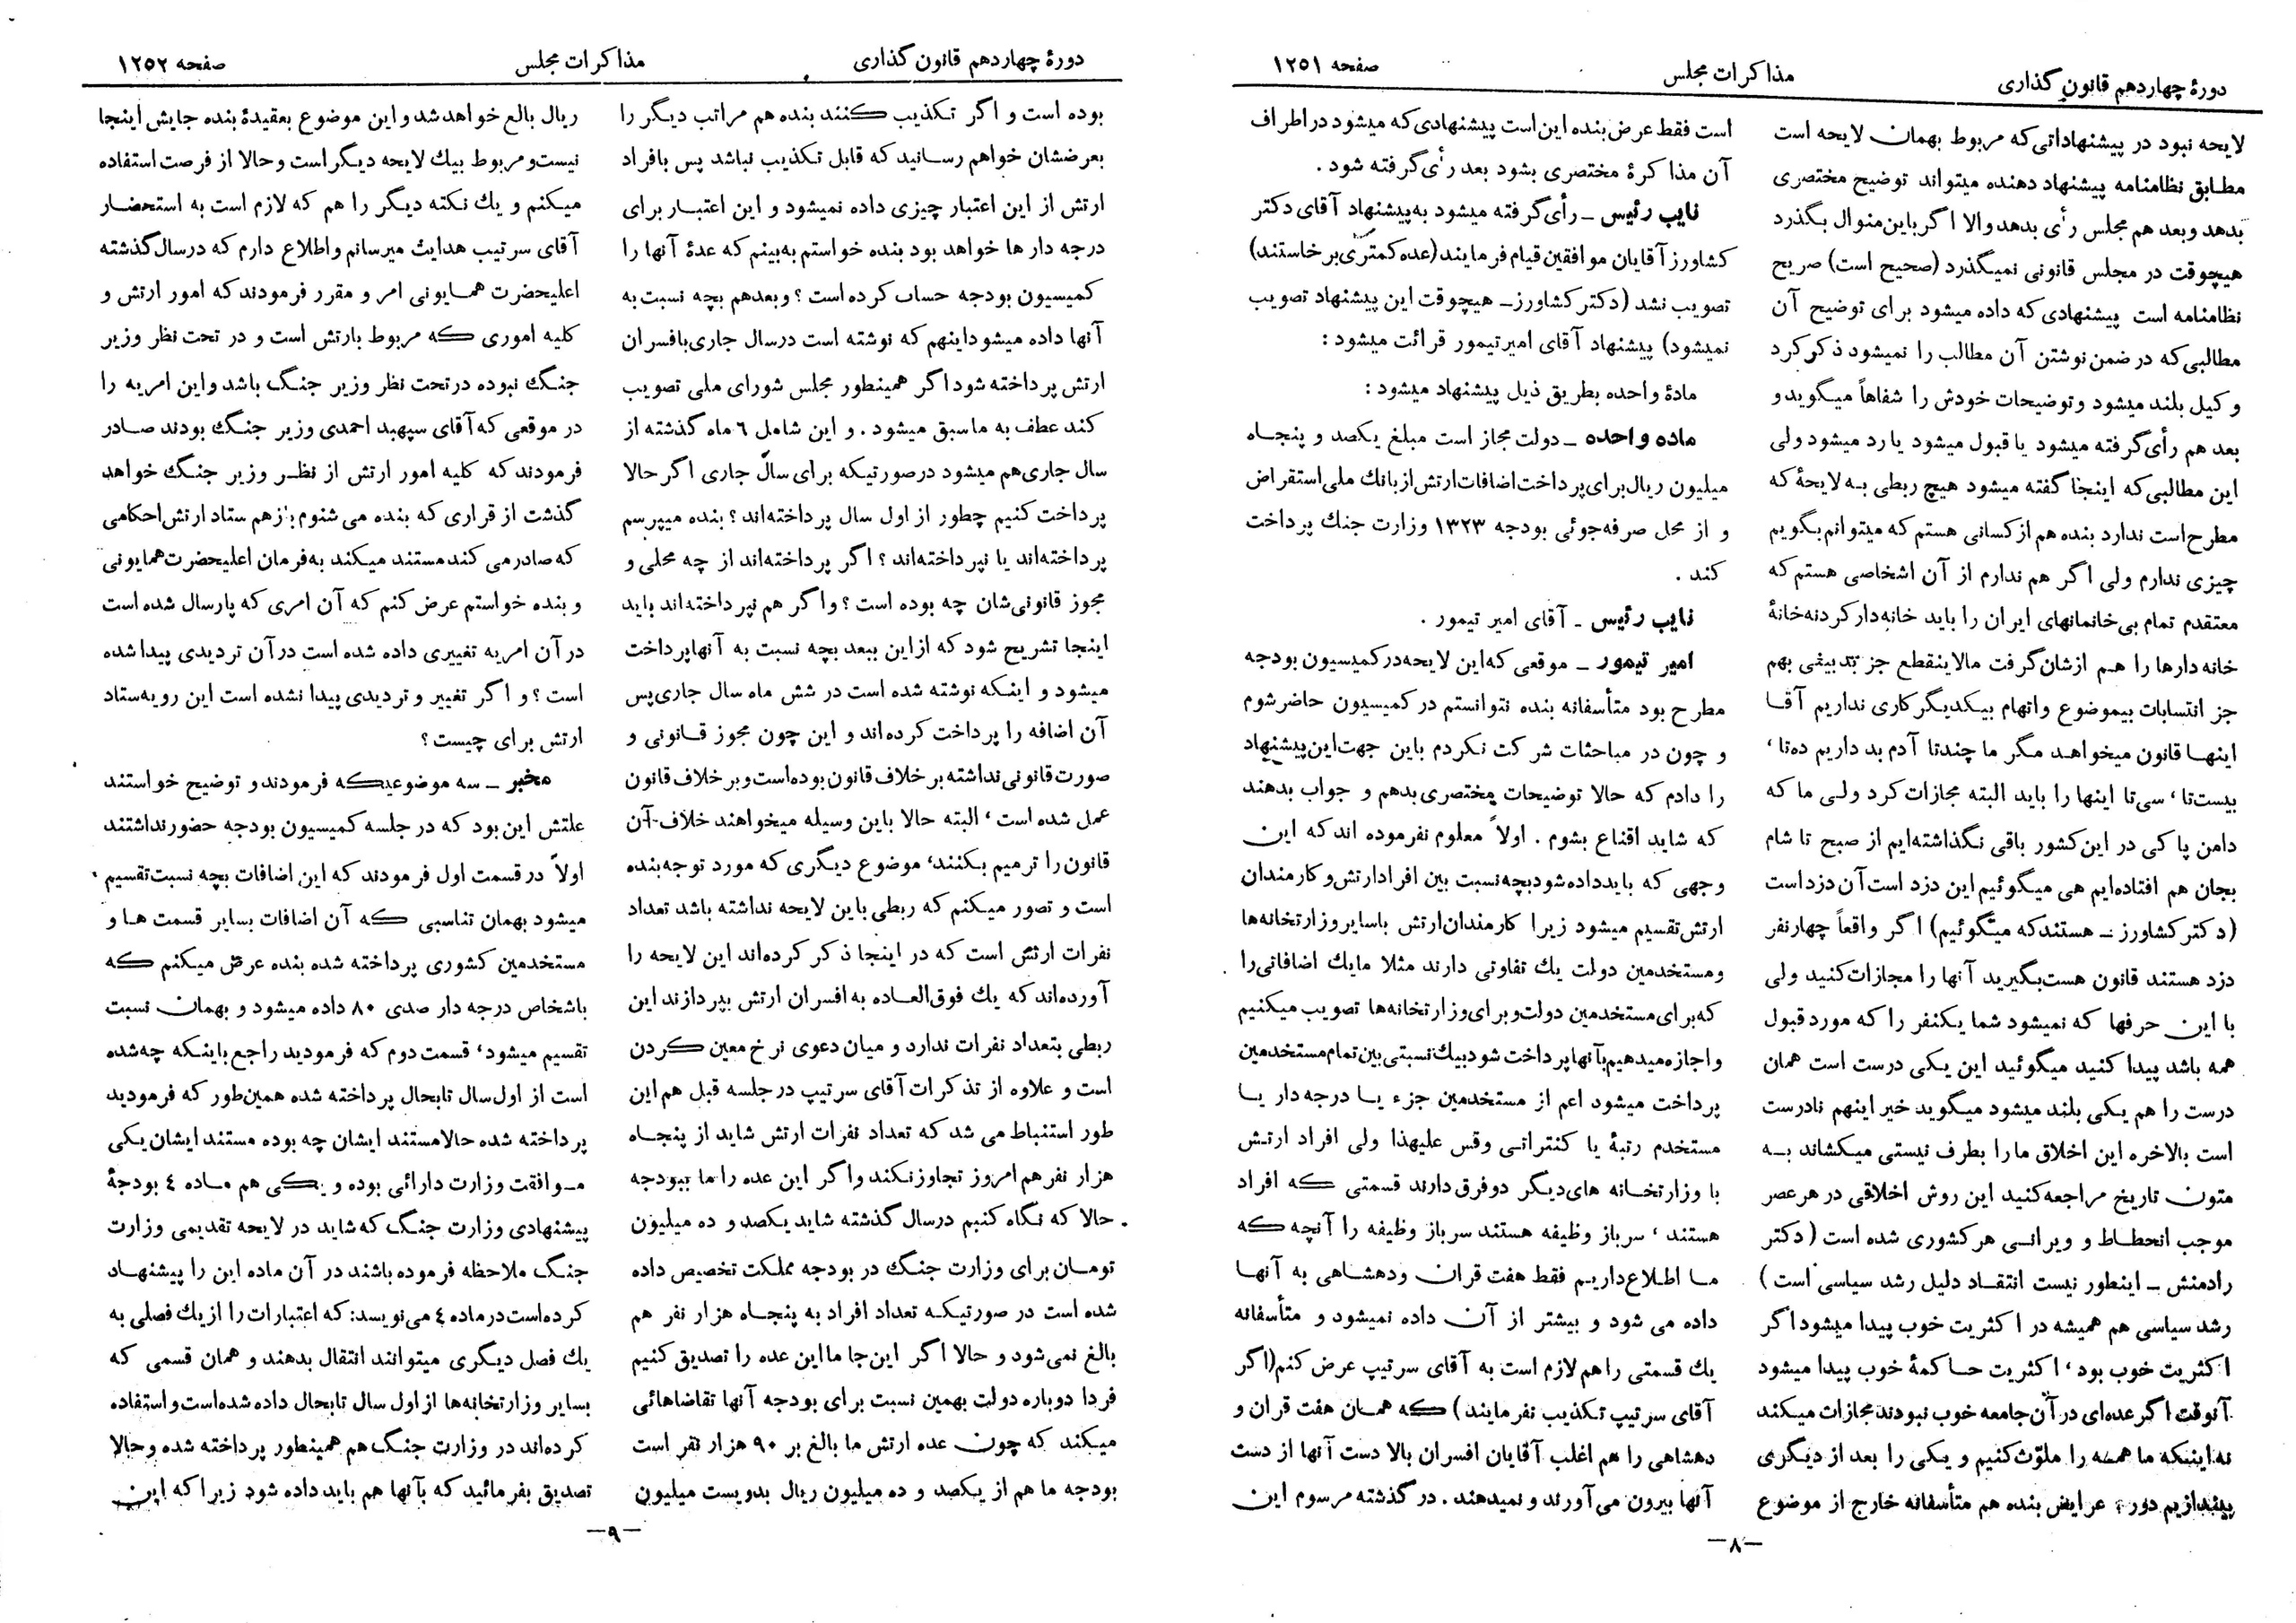 دورهٔ چهاردهم قانون گذاری
مذاکرات مجلس
صفحه ۱۲۵۱
لایحه نبود در پیشنهاداتی که مربوط بهمان لایحه است
مطابق نظامنامه پیشنهاد دهنده میتواند توضیح مختصری
بدهد وبعد هم مجلس رأی بدهد والا اگر باین منوال بگذرد
هیچوقت در مجلس قانونی نمیگذرد (صحیح است) صریح
نظامنامه است پیشنهادی که داده میشود برای توضیح آن
مطالبی که در ضمن نوشتن آن مطالب را نمیشود ذکر کرد
وکیل بلند میشود وتوضیحات خودش را شفاهاً میگوید و
بعد هم رأی گرفته میشود یا قبول میشود یا رد میشود ولی
این مطالبی که اینجا گفته میشود هیچ ربطی به لایحهٔ که
مطرح است ندارد بنده هم از کسانی هستم که میتوانم بگویم
چیزی ندارم ولی اگر هم ندارم از آن اشخاصی هستم که
معتقدم تمام بی خانمانهای ایران را باید خانه دار کرد نه خانهٔ
خانه دارها را هم ازشان گرفت مالاینقطع جز بدبینی بهم
جز انتسابات بیموضوع واتهام بیکدیگر کاری نداریم آقا
اینها قانون میخواهد مگر ما چندتا آدم بد داریم ده تا ،
بیست تا ، سی تا اینها را باید البته مجازات کرد ولی ما که
دامن پاکی در این کشور باقی نگذاشته‌ایم از صبح تا شام
بجان هم افتاده‌ایم هی میگوئیم این دزد است آن دزد است
(دکتر کشاورز ـ هستند که میگوئیم) اگر واقعاً چهارنفر
دزد هستند قانون هست بگیرید آنها را مجازات کنید ولی
با این حرفها که نمیشود شما یکنفر را که مورد قبول
همه باشد پیدا کنید میگوئید این یکی درست است همان
درست را هم یکی بلند میشود میگوید خیر اینهم نادرست
است بالاخره این اخلاق ما را بطرف نیستی میکشاند به
متون تاریخ مراجعه کنید این روش اخلاقی در هر عصر
موجب انحطاط و ویرانی هر کشوری شده است (دکتر
رادمنش ـ اینطور نیست انتقاد دلیل رشد سیاسی است)
رشد سیاسی هم همیشه در اکثریت خوب پیدا میشود اگر
اکثریت خوب بود ، اکثریت حاکمهٔ خوب پیدا میشود
آنوقت اگر عده‌ای در آن جامعه خوب نبودند مجازات میکند
نه اینکه ما همه را ملوّث کنیم و یکی را بعد از دیگری
بیندازیم دور ؛ عرایض بنده هم متأسفانه خارج از موضوع
است فقط عرض بنده این است پیشنهادی که میشود در اطراف
آن مذاکرهٔ مختصری بشود بعد رأی گرفته شود .
نایب رئیس ـ رأی گرفته میشود به پیشنهاد آقای دکتر
کشاورز آقایان موافقین قیام فرمایند (عده کمتری برخاستند)
تصویب نشد (دکتر کشاورز ـ هیچوقت این پیشنهاد تصویب
نمیشود) پیشنهاد آقای امیر تیمور قرائت میشود :
مادهٔ واحده بطریق ذیل پیشنهاد میشود :
ماده واحده ـ دولت مجاز است مبلغ یکصد و پنجاه
میلیون ریال برای پرداخت اضافات ارتش از بانک ملی استقراض
و از محل صرفه جوئی بودجه ۱۳۲۳ وزارت جنك پرداخت
کند .
نایب رئیس ـ آقای امیر تیمور .
امیر تیمور ـ موقعی که این لایحه در کمیسیون بودجه
مطرح بود متأسفانه بنده نتوانستم در کمیسیون حاضر شوم
و چون در مباحثات شرکت نکردم باین جهت این پیشنهاد
را دادم که حالا توضیحات مختصری بدهم و جواب بدهند
که شاید اقناع بشوم . اولاً معلوم نفرموده اند که این
وجهی که باید داده شود بچه نسبت بین افراد ارتش و کارمندان
ارتش تقسیم میشود زیرا کارمندان ارتش با سایر وزارتخانه‌ها
ومستخدمین دولت یك تفاوتی دارند مثلا ما یك اضافاتی را
که برای مستخدمین دولت و برای وزارتخانه‌ها تصویب میکنیم
واجازه میدهیم بآنها پرداخت شود بیك نسبتی بین تمام مستخدمین
پرداخت میشود اعم از مستخدمین جزء یا درجه دار یا
مستخدم رتبهٔ یا کنتراتی وقس علیهذا ولی افراد ارتش
با وزارتخانه های دیگر دو فرق دارند قسمتی که افراد
هستند ، سرباز وظیفه هستند سرباز وظیفه را آنچه که
ما اطلاع داریم فقط هفت قران ودهشاهی به آنها
داده می شود و بیشتر از آن داده نمیشود و متأسفانه
یك قسمتی را هم لازم است به آقای سرتیپ عرض کنم (اگر
آقای سرتیپ تکذیب نفرمایند) که همان هفت قران و
دهشاهی را هم اغلب آقایان افسران بالا دست آنها از دست
آنها بیرون می‌آورند و نمیدهند . در گذشته مرسوم این
ـ۸ـ
دورهٔ چهاردهم قانون گذاری
مذاکرات مجلس
صفحه ۱۲۵۲
بوده است و اگر تکذیب کنند بنده هم مراتب دیگر را
بعرضشان خواهم رسانید که قابل تکذیب نباشد پس بافراد
ارتش از این اعتبار چیزی داده نمیشود و این اعتبار برای
درجه دار ها خواهد بود بنده خواستم به بینم که عدهٔ آنها را
کمیسیون بودجه حساب کرده است ؟ وبعدهم بچه نسبت به
آنها داده میشود اینهم که نوشته است در سال جاری بافسران
ارتش پرداخته شود اگر همینطور مجلس شورای ملی تصویب
کند عطف به ماسبق میشود . و این شامل ٦ ماه گذشته از
سال جاری هم میشود درصورتیکه برای سال جاری اگر حالا
پرداخت کنیم چطور از اول سال پرداخته‌اند ؟ بنده میپرسم
پرداخته‌اند یا نپرداخته‌اند ؟ اگر پرداخته‌اند از چه محلی و
مجوز قانونی شان چه بوده است ؟ واگر هم نپرداخته‌اند باید
اینجا تشریح شود که از این ببعد بچه نسبت به آنها پرداخت
میشود و اینکه نوشته شده است در شش ماه سال جاری پس
آن اضافه را پرداخت کرده‌اند و این چون مجوز قانونی و
صورت قانونی نداشته برخلاف قانون بوده است و برخلاف قانون
عمل شده است ، البته حالا باین وسیله میخواهند خلاف آن
قانون را ترمیم بکنند، موضوع دیگری که مورد توجه بنده
است و تصور میکنم که ربطی باین لایحه نداشته باشد تعداد
نفرات ارتش است که در اینجا ذکر کرده‌اند این لایحه را
آورده‌اند که یك فوق‌العاده به افسران ارتش بپردازند این
ربطی بتعداد نفرات ندارد و میان دعوی نرخ معین کردن
است و علاوه از تذکرات آقای سرتیپ در جلسه قبل هم این
طور استنباط می شد که تعداد نفرات ارتش شاید از پنجاه
هزار نفر هم امروز تجاوز نکند واگر این عده را ما ببودجه
حالا که نگاه کنیم درسال گذشته شاید یکصد و ده میلیون
تومان برای وزارت جنگ در بودجه مملکت تخصیص داده
شده است در صورتیکه تعداد افراد به پنجاه هزار نفر هم
بالغ نمی شود و حالا اگر این جا ما این عده را تصدیق کنیم
فردا دوباره دولت بهمین نسبت برای بودجه آنها تقاضاهائی
میکند که چون عده ارتش ما بالغ بر ۹۰ هزار نفر است
بودجه ما هم از یکصد و ده میلیون ریال بدویست میلیون
ریال بالغ خواهد شد و این موضوع بعقیدهٔ بنده جایش اینجا
نیست و مربوط بیك لایحه دیگر است و حالا از فرصت استفاده
میکنم و یك نکته دیگر را هم که لازم است به استحضار
آقای سرتیب هدایت میرسانم واطلاع دارم که درسال گذشته
اعلیحضرت همایونی امر و مقرر فرمودند که امور ارتش و
کلیه اموری که مربوط بارتش است و در تحت نظر وزیر
جنگ نبوده در تحت نظر وزیر جنگ باشد واین امریه را
در موقعی که آقای سپهبد احمدی وزیر جنگ بودند صادر
فرمودند که کلیه امور ارتش از نظر وزیر جنگ خواهد
گذشت از قراری که بنده می شنوم بازهم ستاد ارتش احکامی
که صادر می کند مستند میکند به فرمان اعلیحضرت همایونی
و بنده خواستم عرض کنم که آن امری که پارسال شده است
در آن امریه تغییری داده شده است در آن تردیدی پیدا شده
است ؟ و اگر تغییر و تردیدی پیدا نشده است این رویه ستاد
ارتش برای چیست ؟
مخبر ـ سه موضوعیکه فرمودند و توضیح خواستند
علتش این بود که در جلسه کمیسیون بودجه حضور نداشتند
اولاً در قسمت اول فرمودند که این اضافات بچه نسبت تقسیم
میشود بهمان تناسبی که آن اضافات بسایر قسمت ها و
مستخدمین کشوری پرداخته شده بنده عرض میکنم که
باشخاص درجه دار صدی ۸۰ داده میشود و بهمان نسبت
تقسیم میشود ، قسمت دوم که فرمودید راجع باینکه چه شده
است از اول سال تابحال پرداخته شده همین‌طور که فرمودید
پرداخته شده حالا مستند ایشان چه بوده مستند ایشان یکی
موافقت وزارت دارائی بوده و یکی هم ماده ٤ بودجهٔ
پیشنهادی وزارت جنگ که شاید در لایحه تقدیمی وزارت
جنگ ملاحظه فرموده باشند در آن ماده این را پیشنهاد
کرده‌است درماده ٤ می‌نویسد : که اعتبارات را از یك فصلی به
یك فصل دیگری میتوانند انتقال بدهند و همان قسمی که
بسایر وزارتخانه‌ها از اول سال تابحال داده شده است و استفاده
کرده‌اند در وزارت جنگ هم همینطور پرداخته شده وحالا
تصدیق بفرمائید که بآنها هم باید داده شود زیرا که این
ـ۹ـ